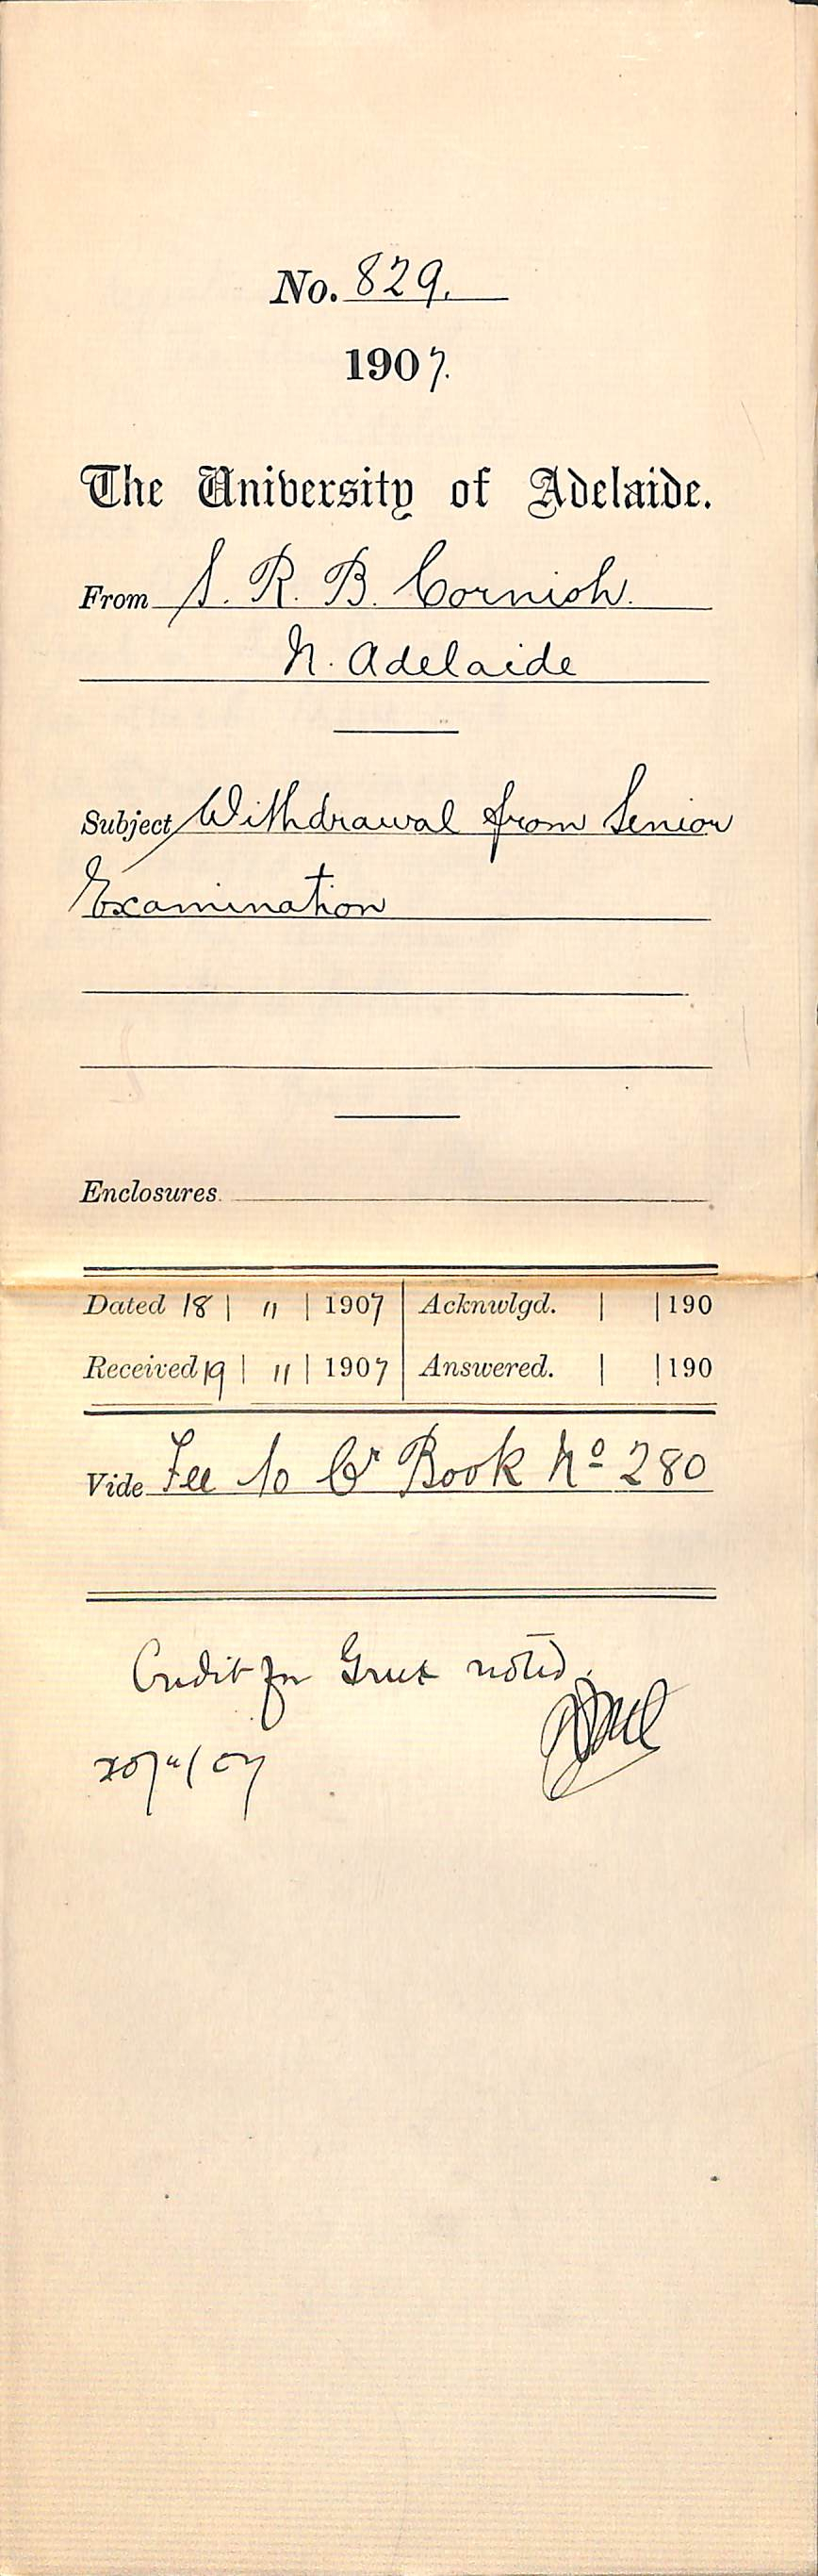 No. 829.
1907.
The University of Adelaide.
From S. R. B. Cornish.
N. Adelaide
Subject Withdrawal from Senior
Examination
Enclosures
Dated 18 | 11 | 1907 Acknwlgd. | |190
Received 19 | 11 | 1907 Answered. | |190
Vide Fee to Cr Book No 280
Credit for noted.
20/11/07